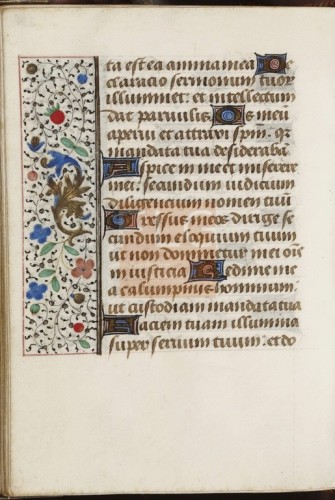 ta est ea anima mea De
claracio sermonum tuor
illuminet: et intellectum
dat parvulis. Os meu
aperui et attraxi spm. qr
mandata tua desideraba
Aspice in me et miserere
mei: secundum iudicium
diligencium nomen tuu
Gressus meos dirige se
cundum eloquium tuum
ut non dominetur mei ois
in iusticia Redime me
a calumpniis hominum:
ut custodiam mandata tua
Faciem tuam illumina
super servum tuum: et do